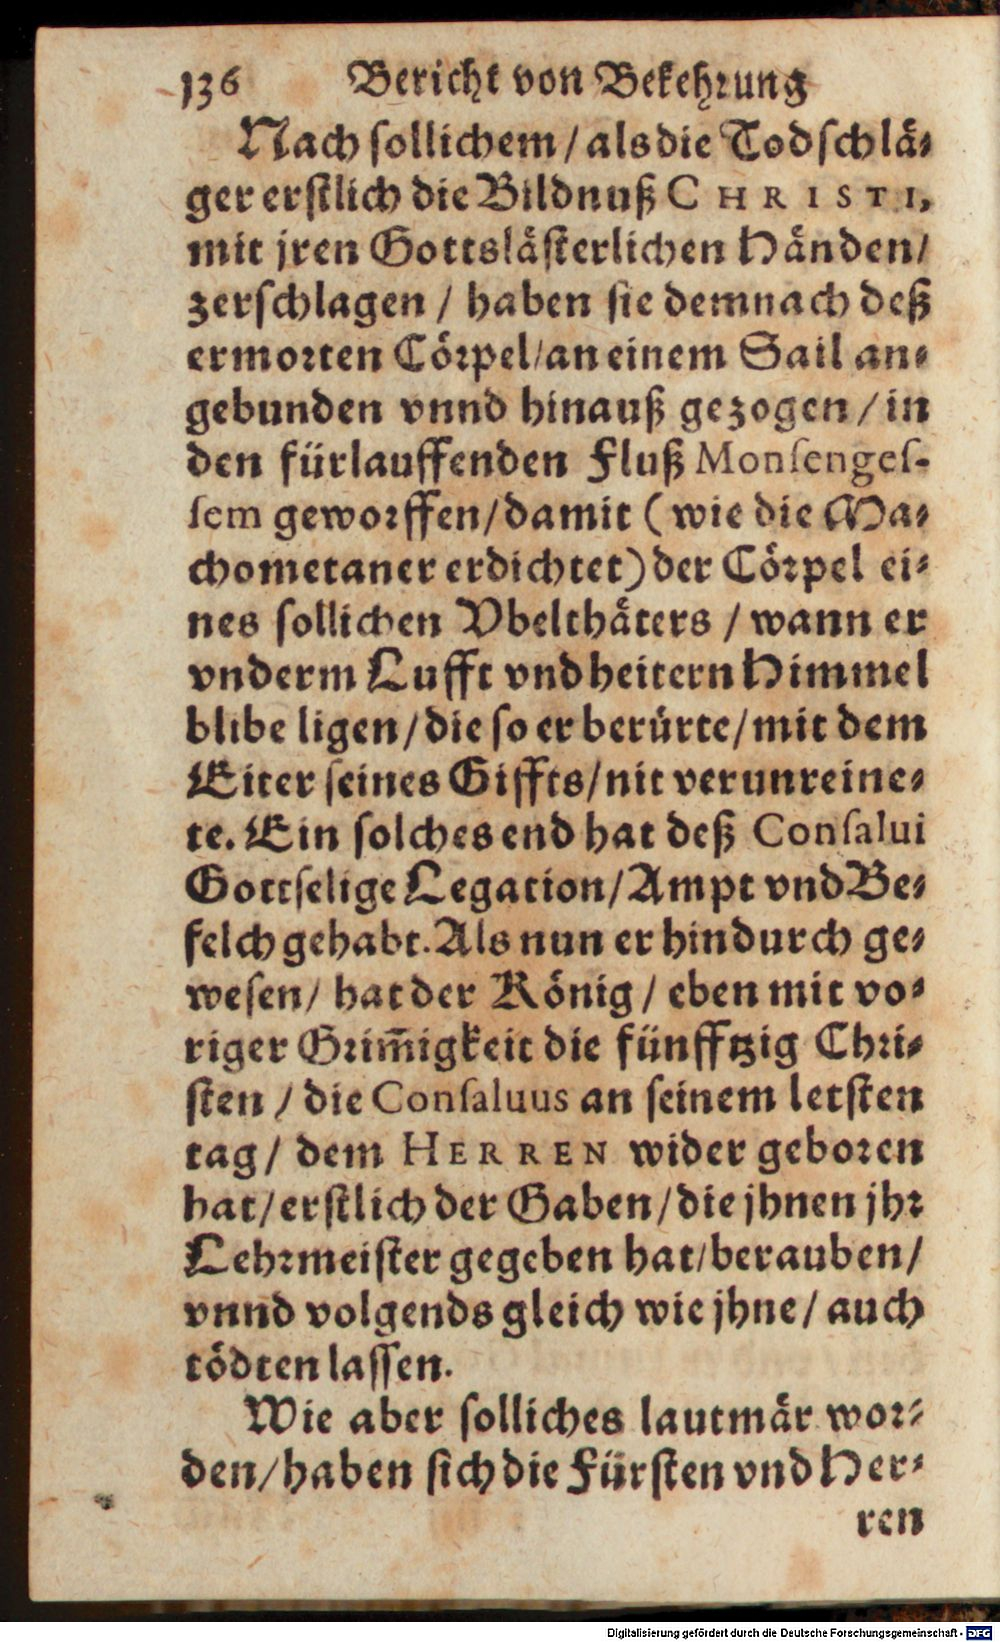 136 Bericht von Bekehrung
Nach sollichem / als die Todschlä⸗
ger erstlich die Bildnuß CHRISTI,
mit jren Gottslästerlichen Händen /
zerschlagen / haben sie demnach deß
ermorten Cörpel / an einem Sail an⸗
gebunden vnnd hinauß gezogen / in
den fürlauffenden Fluß Monsenges-
sem geworffen / damit ( wie die Ma⸗
chometaner erdichtet) der Cörpel ei⸗
nes sollichen Vbelthäters / wann er
vnderm Lufft vnd heitern Himmel
blibe ligen / die so er berürte / mit dem
Eiter seines Giffts / nit verunreine⸗
te. Ein solches end hat deß Consalui
Gottselige Legation / Ampt vnd Be⸗
felch gehabt. Als nun er hindurch ge⸗
wesen / hat der König / eben mit vo⸗
riger Grim̃igkeit die fünfftzig Chri⸗
sten / die Consaluus an seinem letsten
tag / dem HERREN wider geboren
hat / erstlich der Gaben / die jhnen jhr
Lehrmeister gegeben hat / berauben /
vnnd volgends gleich wie jhne / auch
tödten lassen.
Wie aber solliches lautmär wor⸗
den / haben sich die Fürsten vnd Her⸗
ren
Digitalisierung gefördert durch die Deutsche Forschungsgemeinschaft - DFG